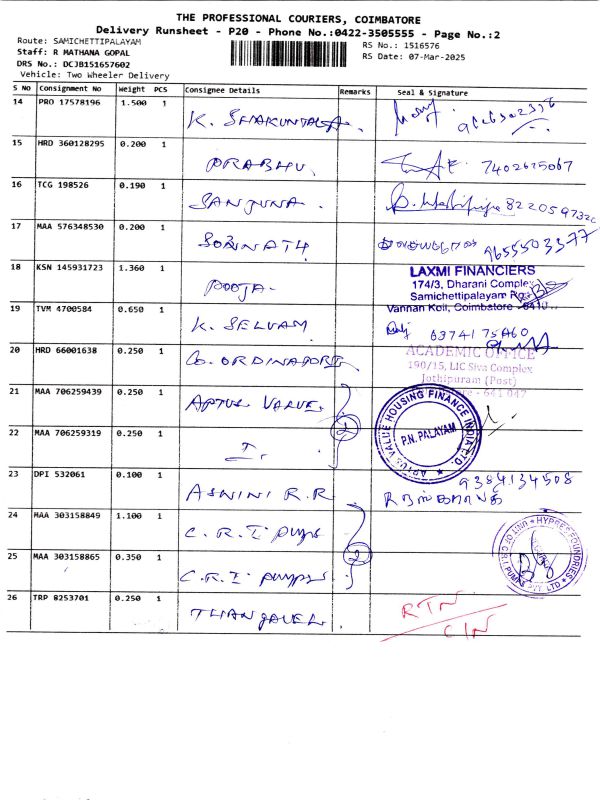 THE PROFESSIONAL COURIERS, COIMBATORE
Delivery Runsheet - P20 - Phone No.:0422-3505555 - Page No.:2
Route: SAMICHETTIPALAYAM
Staff: R MATHANA GOPAL
DRS No.: DCJB151657602
Vehicle: Two Wheeler Delivery
RS No.: 1516576
RS Date: 07-Mar-2025
S No Consignment No Weight PCS Consignee Details Remarks Seal & Signature
14 PRO 17578196 1.500 1 K. SHAKUNTALA.
15 HRD 360128295 0.200 1 PRABHU. 7402625067
16 TCG 198526 0.190 1 SANJUNA.
17 MAA 576348530 0.200 1 9655503377
18 KSN 145931723 1.360 1 POOJA.
LAXMI FINANCIERS
174/3, Dharani Complex
Samichettipalayam
Vannan Koil, Coimbatore
19 TVM 4700584 0.650 1 K. SELVAM 6374175460
20 HRD 66001638 0.250 1
ACADEMIC OFFICE
190/15, LIC Siva Complex
Jothipuram (Post)
641 047
21 MAA 706259439 0.250 1 APTUS VALUE. 2
APTUS VALUE HOUSING FINANCE INDIA LTD.
P.N. PALAYAM
22 MAA 706259319 0.250 1
23 DPI 532061 0.100 1 ASWINI R.R 9384134508
24 MAA 303158849 1.100 1 C.R.I pumps 2
25 MAA 303158865 0.350 1 C.R.I pumps
26 TRP 8253701 0.250 1 THANGAVEL. RTN